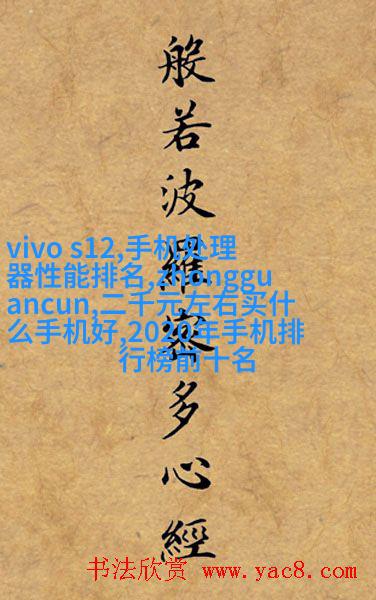 般若波羅蜜多心經
vivo s12,手机处理
器性能排名,zhonggu
ancun,二千元左右买什
么手机好,2020年手机排
行榜前十名
书法欣赏 www.yac8.com